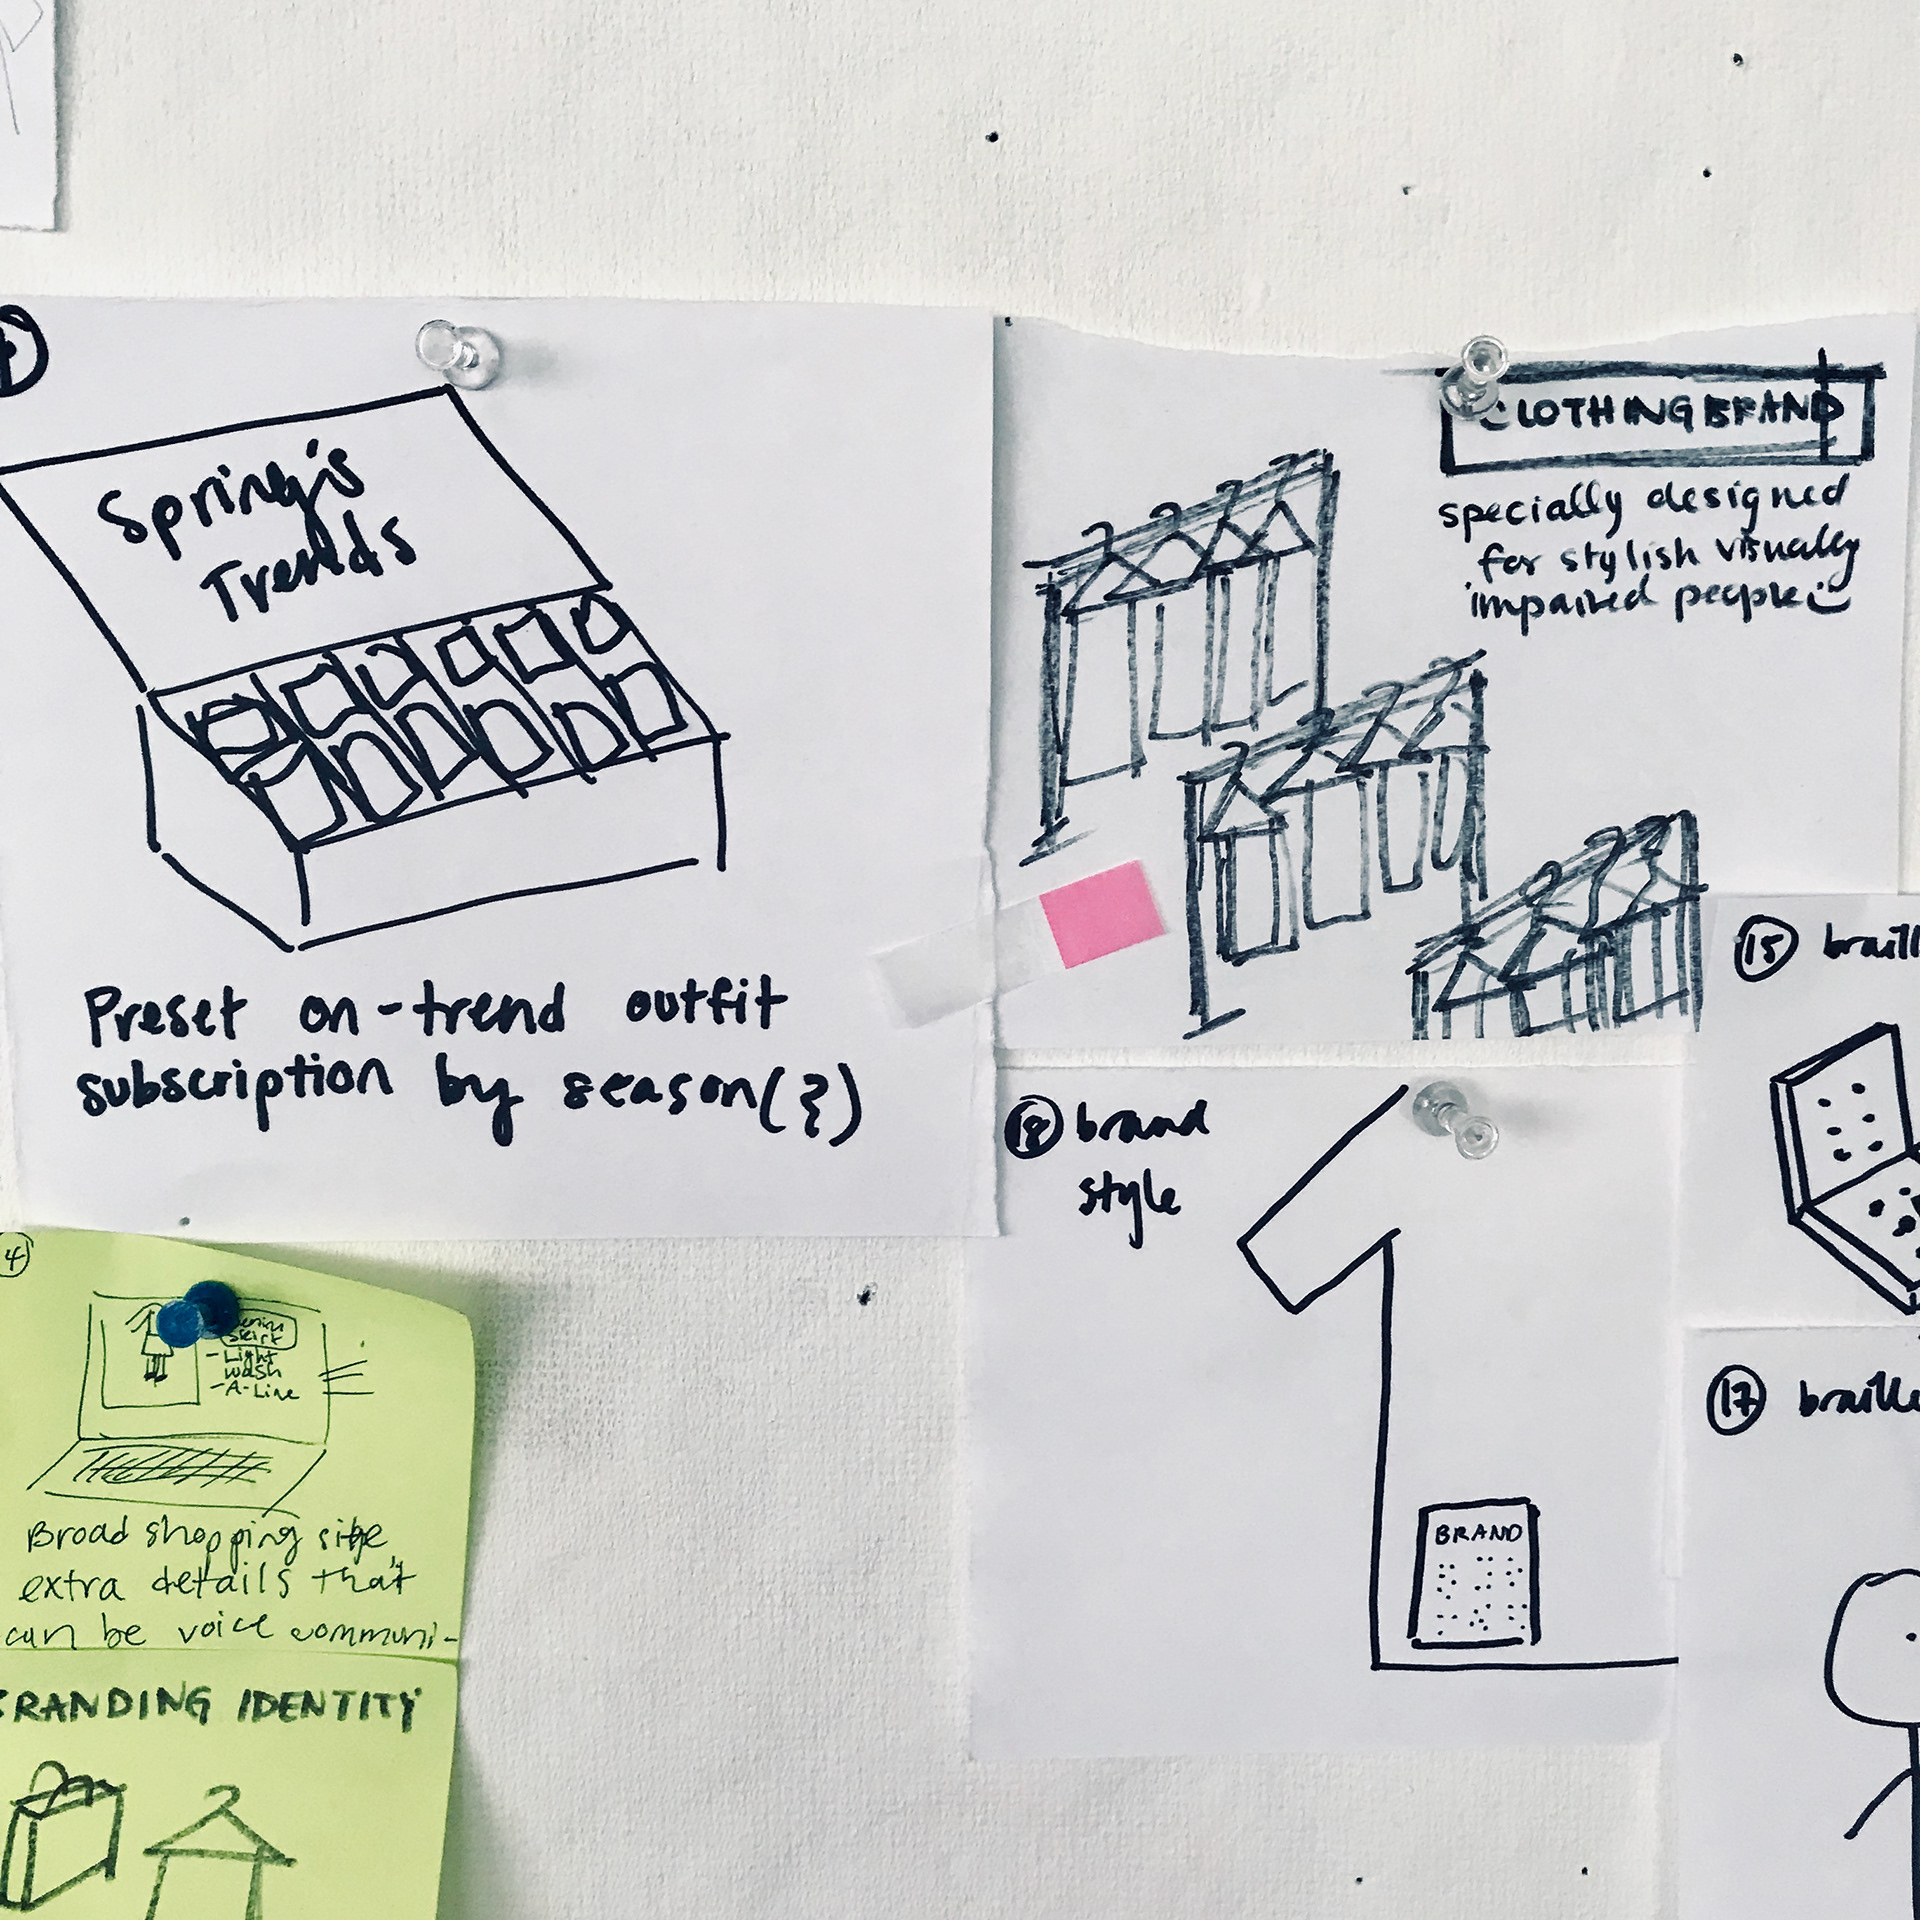 Spring's
Trends
Preset on-trend outfit
subscription by season(?)
CLOTHING BRAND
specially designed
for stylish visually
impaired people
15
18 brand
style
BRAND
17
4
skirt
-Light
wash
-A-Line
Broad shopping site
extra details that
can be voice communi-
BRANDING IDENTITY